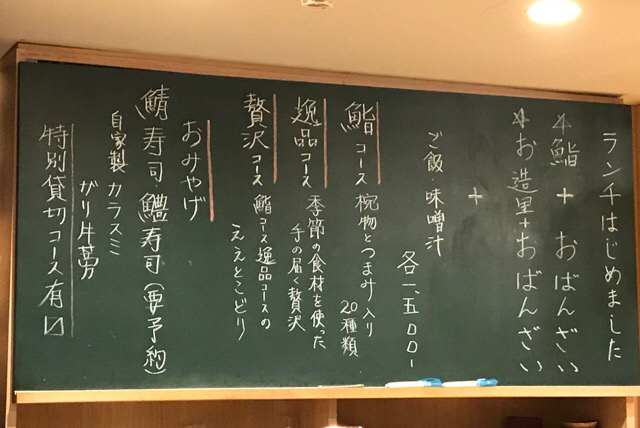 ランチはじめました
鮨+おばんざい
お造里+おばんざい
+
ご飯 味噌汁
各一、五〇〇-
鮨コース 椀物とつまみ入り
20種類
逸品コース 季節の食材を使った
手の届く贅沢
贅沢コース 鮨コース逸品コースの
ええとこどり
おみやげ
鯖寿司・鱧寿司(要予約)
自家製カラスミ
がり牛蒡
特別貸切コース有〼